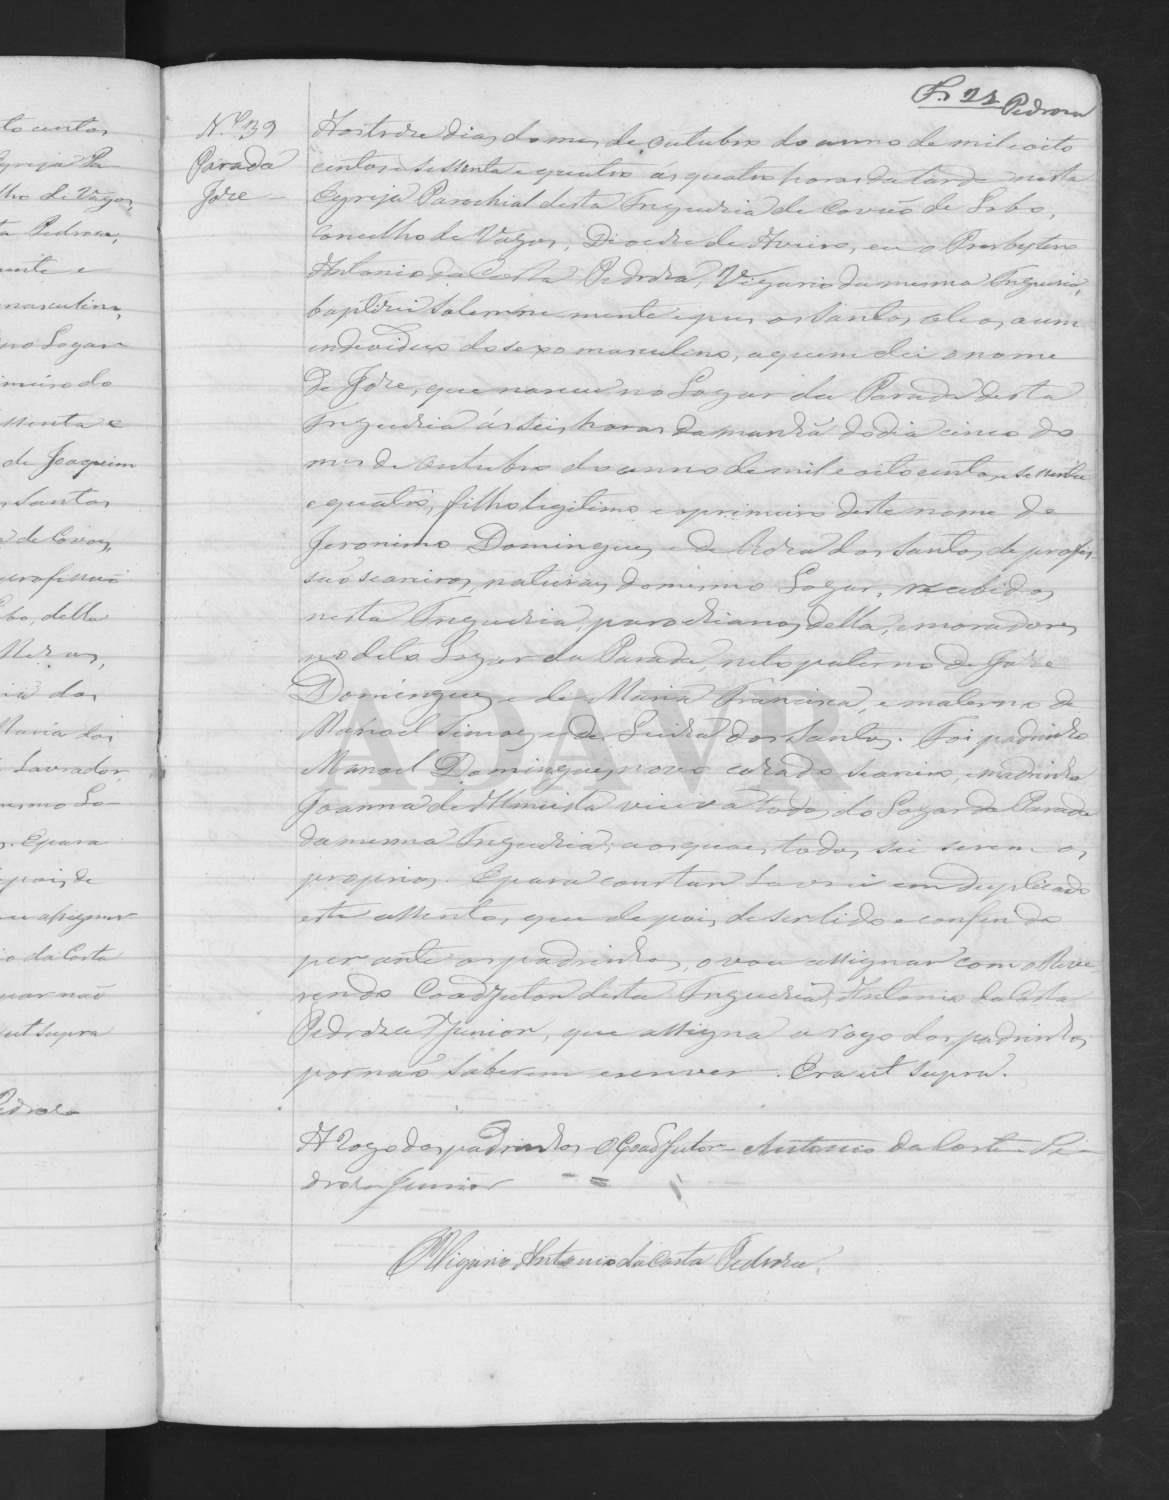 Fs 22 Pedroza
N.º 139
Parada
Joze
Aos treze dias do mes de outubro do anno de mil e oito
centos e sessenta e quatro ás quatro horas da tarde nesta
Egreja Parochial desta Freguezia de Covão do Lobo,
Concelho de Vagos, Diocese de Aveiro, eu o Presbytero
Antonio da Costa Pedroza, Vigario da mesma Freguezia,
baptizei solemnemente e puz os Santos oleos a um
individuo do sexo masculino, a quem dei o nome
de Joze, que nasceu no Logar da Parada desta
Freguezia ás seis horas da manhã do dia cinco do
mes de outubro do anno de mil e oitocentos e sessenta
e quatro, filho legitimo e o primeiro deste nome de
Jeronimo Domingues e de Roza dos Santos, de profis-
são seareiros, naturaes do mesmo Logar, recebidos
nesta Freguezia, parochianos della, e moradores
no dito Logar da Parada, neto paterno de Joze
Domingues e de Maria Francisca, e materno de
Manoel Simoes e de Luiza dos Santos. Foi padrinho
Manoel Domingues novo cazado seareiro, e madrinha
Joanna de Almeida viuva todos do Logar da Parada
da mesma Freguezia, aos quaes todos sei serem os
proprios. E para constar lavrei em duplicado
este assento, que depois de ser lido e conferido
perante os padrinhos, o vou assignar com o Reve-
rendo Coadjutor desta Freguezia, Antonio da Costa
Pedroza Junior, que assigna a rogo dos padrinhos
por não saberem escrever. Era ut supra.
A rogo dos padrinhos O Coadjutor Antonio da Costa Pe-
droza Junior
O Vigario Antonio da Costa Pedroza.
to centos
Egreja Pa
lho de Vagos,
ta Pedroza,
mente e
masculino,
no Logar
imeiro do
essenta e
de Joaquim
s Santos
de Covão,
profissão
della
ia dos
Maria dos
Lavrador
mesmo Lo-
. E para
pois de
ou assignar
io da Costa
por não
ut supra
Pedroza
ADAVR